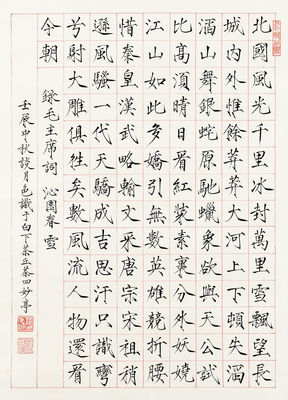 北國風光千里冰封萬里雪飄望長
城内外惟餘莽莽大河上下頓失滔
滔山舞銀蛇原馳蠟象欲與天公試
比高須晴日看紅裝素裹分外妖嬈
江山如此多嬌引無數英雄競折腰
惜秦皇漢武略輸文采唐宗宋祖稍
遜風騷一代天驕成吉思汗只識彎
弓射大雕俱往矣數風流人物還看
今朝
錄毛主席詞 沁園春 雪
壬辰中秋談月色識于白下茶丘茶四妙亭